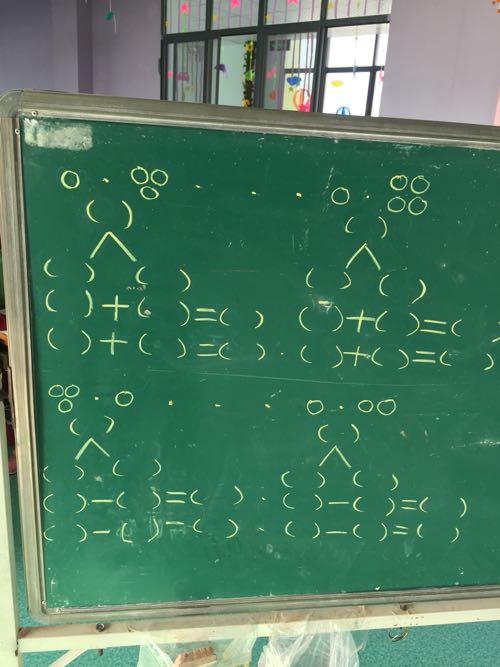 ( ) ( )
( ) ( ) ( ) ( )
( ) + ( ) = ( ) ( ) + ( ) = (
( ) + ( ) = ( ) · ( ) + ( ) = ( )
( ) ( )
( ) ( ) ( ) ( )
( ) − ( ) = ( ) · ( ) − ( ) = ( )
( ) − ( ) = ( ) · ( ) − ( ) = ( )